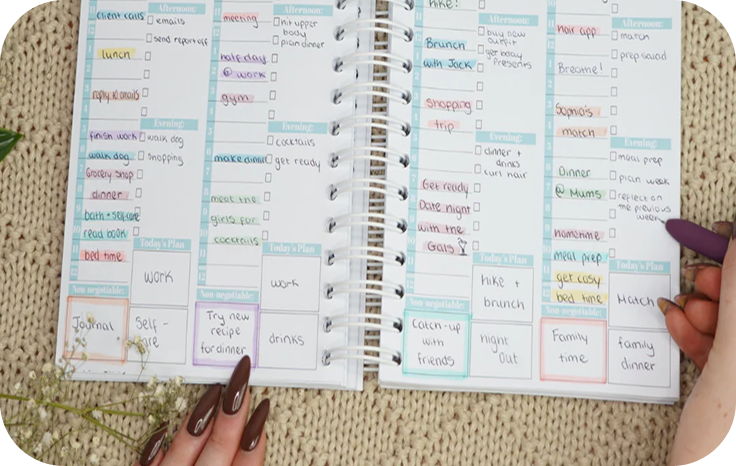 Afternoon:
client calls
emails
send report off
lunch
reply to emails
Evening:
finish work
walk dog
walk dog
shopping
Grocery shop
dinner
bath + selfcare
read book
bed time
Today's Plan
work
Non-negotiable:
Journal
Self -
care
Afternoon:
meeting
hit upper
body
plan dinner
half day
@ work
gym
Evening:
cocktails
make dinner
get ready
meet the
girls for
cocktails
Today's Plan
work
Non-negotiable:
Try new
recipe
for dinner
drinks
hike!
Afternoon:
buy new
outfit
Brunch
get body
presents
with Jack
shopping
trip
Evening:
dinner +
drinks
curl hair
Get ready
Date night
with the
Gals
Today's Plan
hike +
brunch
Non-negotiable:
Catch-up
with
friends
night
out
Afternoon:
hair app
match
prep salad
Breathe!
Sophia's
match
Evening:
meal prep
Dinner
plan week
@ Mums
reflect on
the previous
week
hometime
meal prep
get cosy
bed time
Today's Plan
Match
Non-negotiable:
Family
time
family
dinner